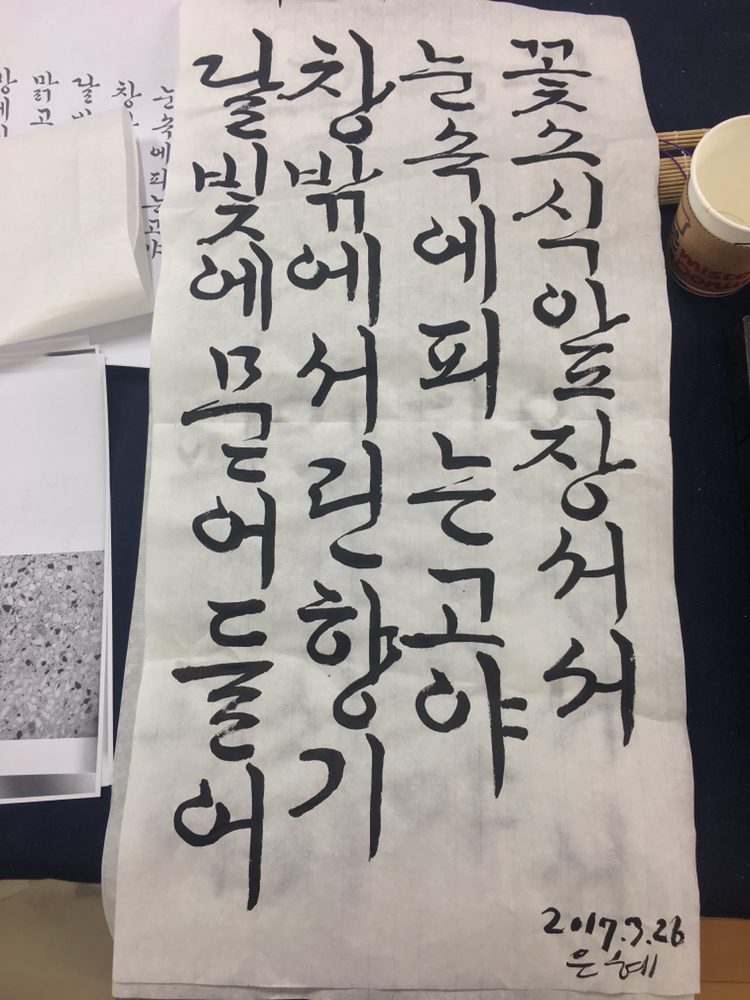 꽃소식앞장서서
눈속에피는고야
창밖에서린향기
달빛에묻어들어
2017.3.26
은혜
눈속에피는고야
창
달
맑고
mister
Donut